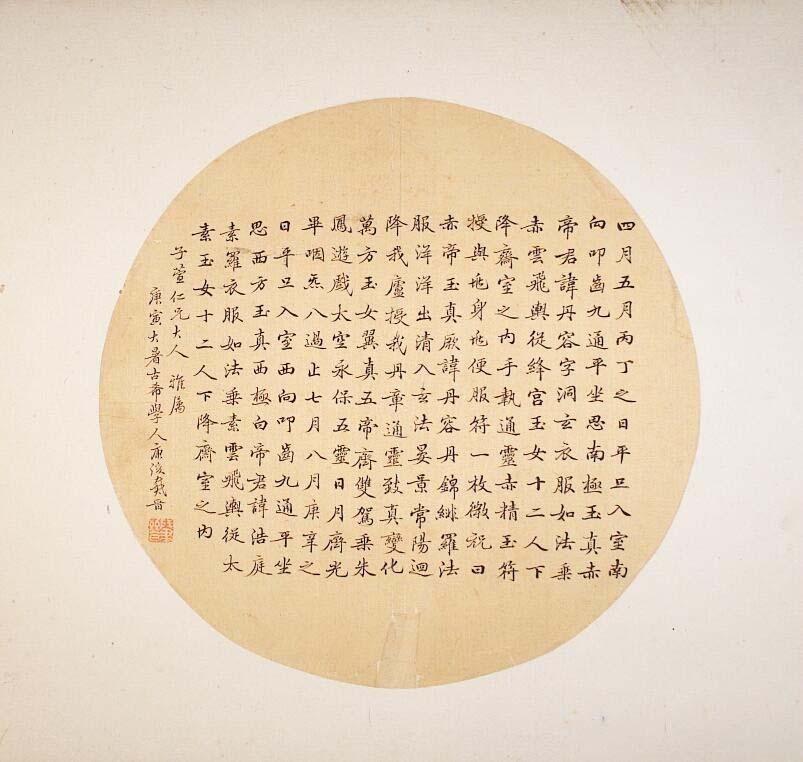 四月五月丙丁之日平旦入室南
向叩齒九通平坐思南極玉真赤
帝君諱丹容字洞玄衣服如法乗
赤雲飛輿從絳宮玉女十二人下
降齋室之内手執通靈赤精玉符
授與兆身兆便服符一枚微祝曰
赤帝玉真厥諱丹容丹錦緋羅法
服洋洋出清入玄法晏景常陽迴
降我廬授我丹章通靈致真變化
萬方玉女翼真五帝齊雙駕乗朱
鳳遊戲太空永保五靈日月齊光
畢咽炁八過止七月八月庚辛之
日平旦入室西向叩齒九通平坐
思西方玉真西極白帝君諱浩庭
素羅衣服如法乗素雲飛輿從太
素玉女十二人下降齋室之内
子萱仁兄大人 雅屬
庚寅大暑古希學人